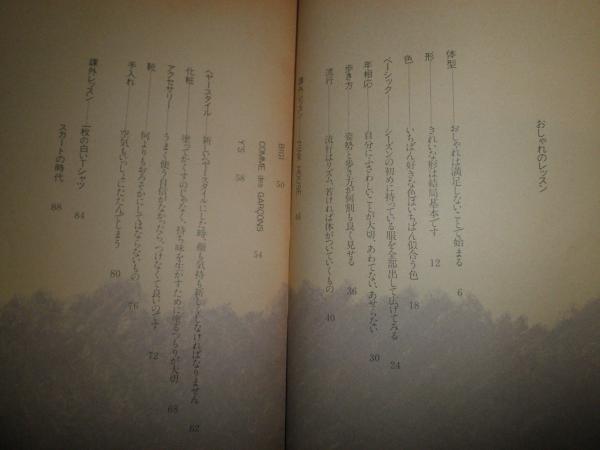 おしゃれのレッスン
体型——おしゃれは満足しないことで始まる 6
形——きれいな形は結局基本です 12
色——いちばん好きな色はいちばん似合う色 18
ベーシック——シーズンの初めに持っている服を全部出して広げてみる 24
年相応——自分にふさわしいことが大切、あわてない、あせらない 30
歩き方——姿勢と歩き方が何割も良く見せる 36
流行——流行はリズム、若ければ体がついていくもの 40
課外レッスン——PINK HOUSE
BIGI 50
COMME des GARÇONS 54
Y'S 58
ヘヤースタイル——新しいヘヤースタイルにした時、顔も気持も新しくしなければなりません 62
化粧——塗ってかくすのじゃなく、持ち味を生かすために塗るつもりが大切 68
アクセサリー——うまく使う自信がなかったら、つけなくて良いのです 72
靴——何よりもおろそかにしてはならないもの 76
手入れ——空気もいっしょにたたんでしまう 80
課外レッスン——一枚の白いTシャツ 84
スカートの時代 88